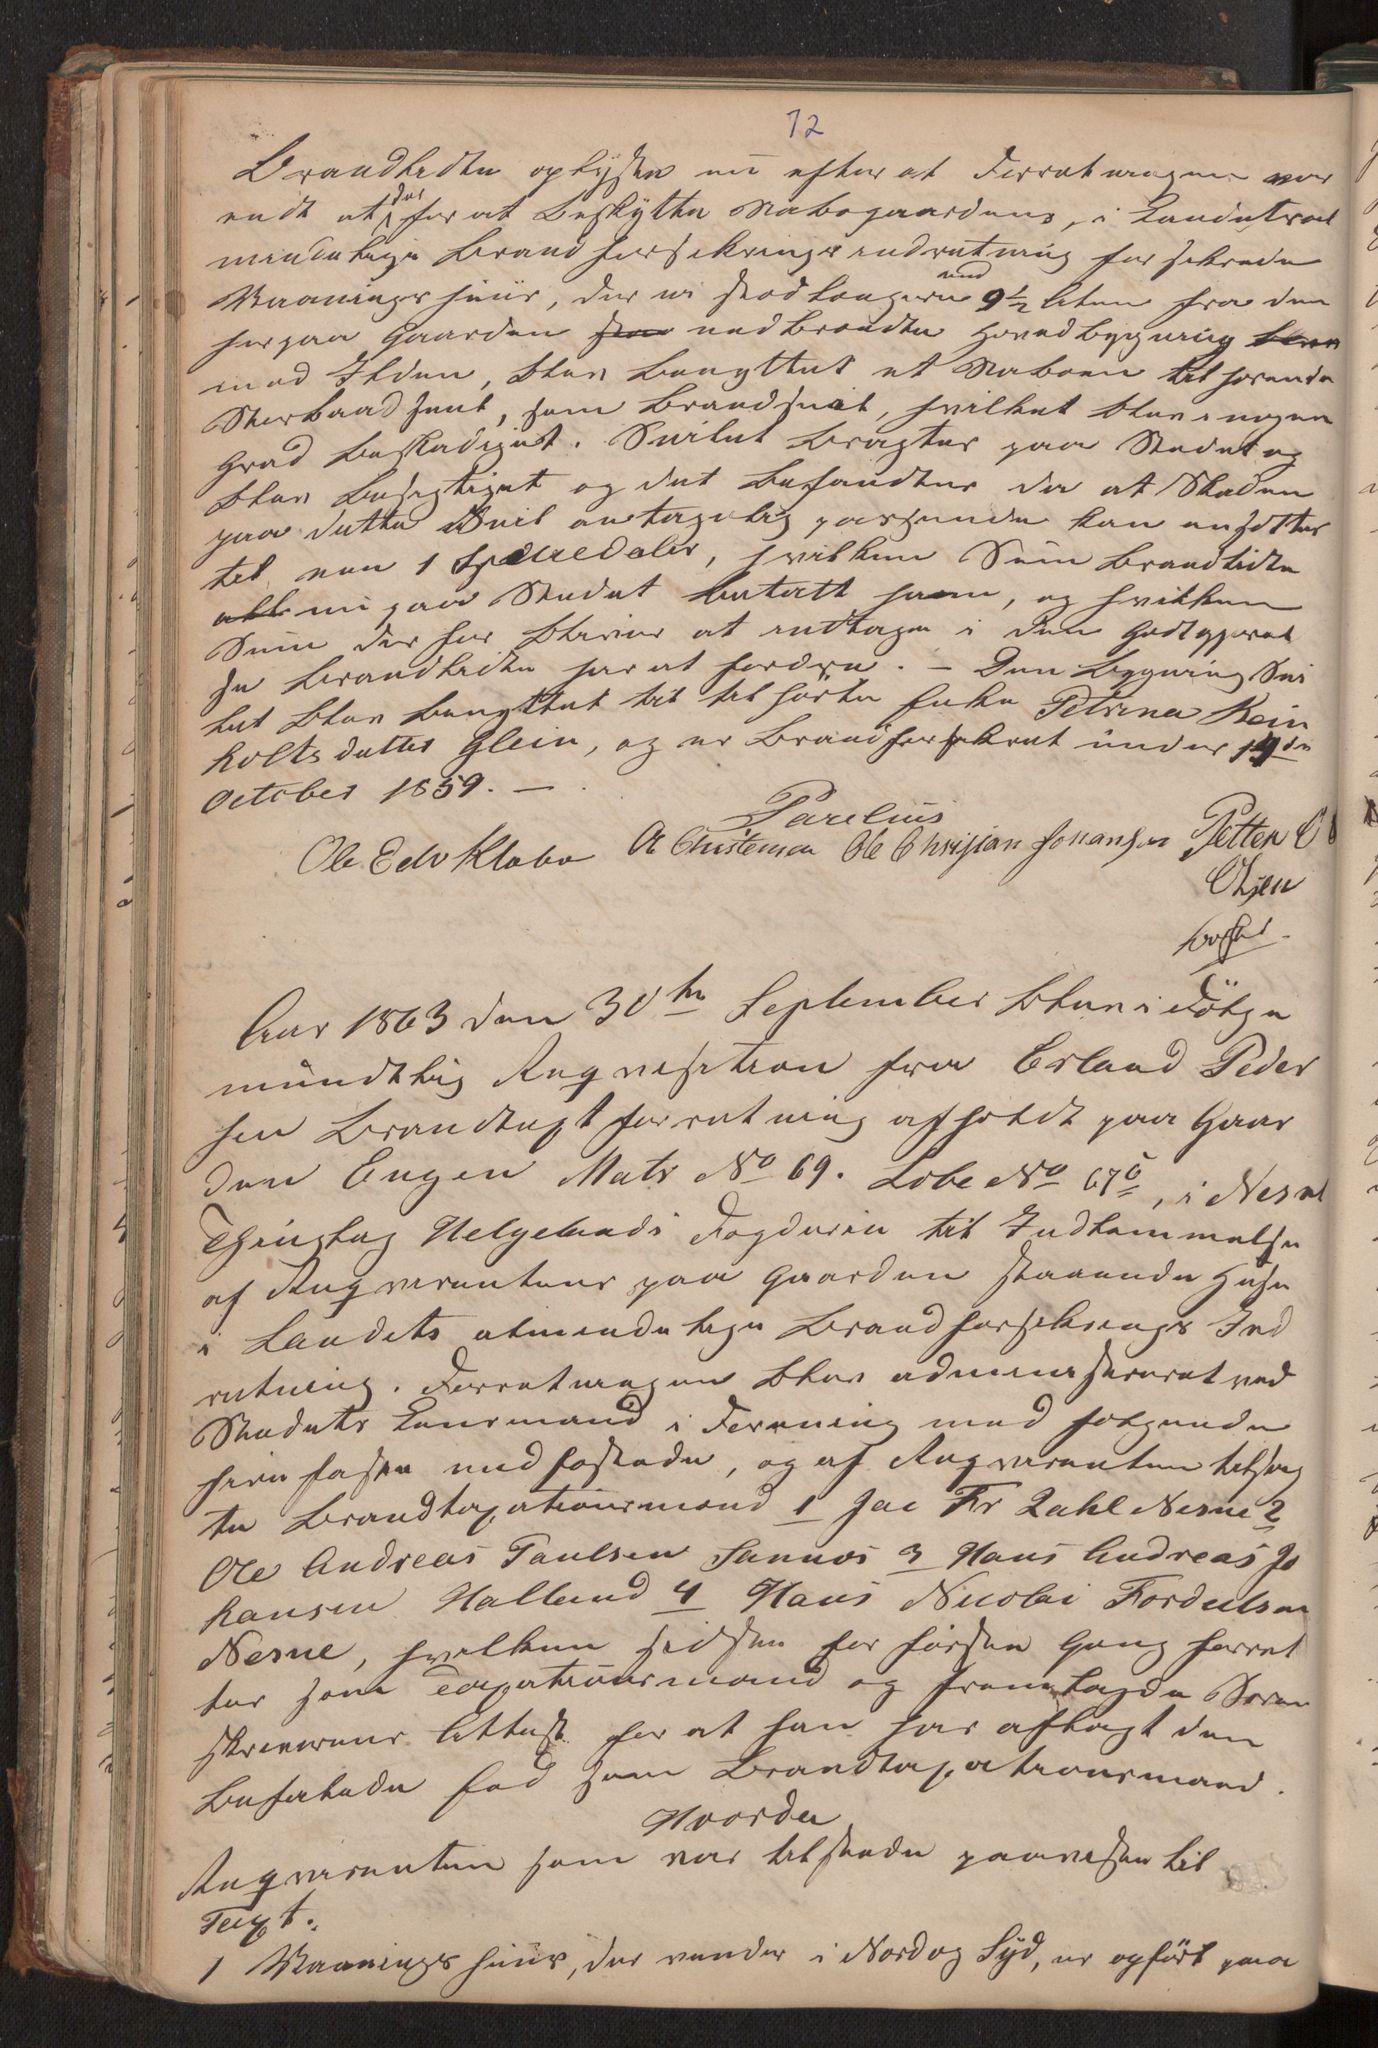 12
Brandlidte oplyste nu efter at Forretningen var
endt at der for at beskytte Nabogaardens, i Landets al
mindelige Brandforsikringsindretning forsikrede
Vaaningshuus, der er stod kun 9½ Alen fra den
her paa Gaarden nedbrændte Hovedbygning
mod Ilden, blev benyttet et Naboen tilhørende
Storbaadseil, som Brandseil, hvilket blev i nogen
Grad beskadiget. Seilet bragtes paa Stedet og
blev besigtiget og det befandtes da at Skaden
paa dette Seil antagelig passende kan ansættes
til een 1 Speciedaler, hvilken Sum Brandlidte
nu paa Stedet betalt ham, og hvilken
Sum derfor bliver at indtage i den Godtgjørel
se Brandlidte har at fordre. — Den Bygning Sei
let blev benyttet til tilhørte Enke Petrina Rein
holtsdatter Glein, og er Brandforsikret under 19de
October 1859. —
Parelius
Ole Edv Klabo A Christensen Ole Christian Johansen Petter O
Olsen
Aar 1863 den 30te September blev i Følge
mündtlig Reqvisition fra Erland Peder
sen Brandtaxtforretning afholdt paa Gaar
den Engen Matr No 69. Løbe No 67b, i Nesne
Thinglag Helgelands Fogderie til Indlemmelse
af Reqvirentens paa Gaarden staaende Huse
i Landets almindelige Brandforsikrings Ind
retning. Forretningen blev administreret ved
Stedets Lensmand i Forening med følgende
herefter nedføiede, og af Reqvirenten tilsag
te Brandtaxationsmænd 1 Jac Fr Zahl Nesne 2
Ole Andreas Paulsen Sannæs 3 Hans Andreas Jo
hansen Halland 4 Hans Nicolai Fordelsen
Nesne, hvilken sidste for første Gang forret
ter som Taxationsmand og fremlagde Soren
skriverens Attest for at han har aflagt den
befalede Eed som Brandtaxationsmand.
Hvorda
Reqvirenten som var tilstede paaviste til
Taxt.
1 Vaaningshuus, der vender i Nord og Syd, er opført paa